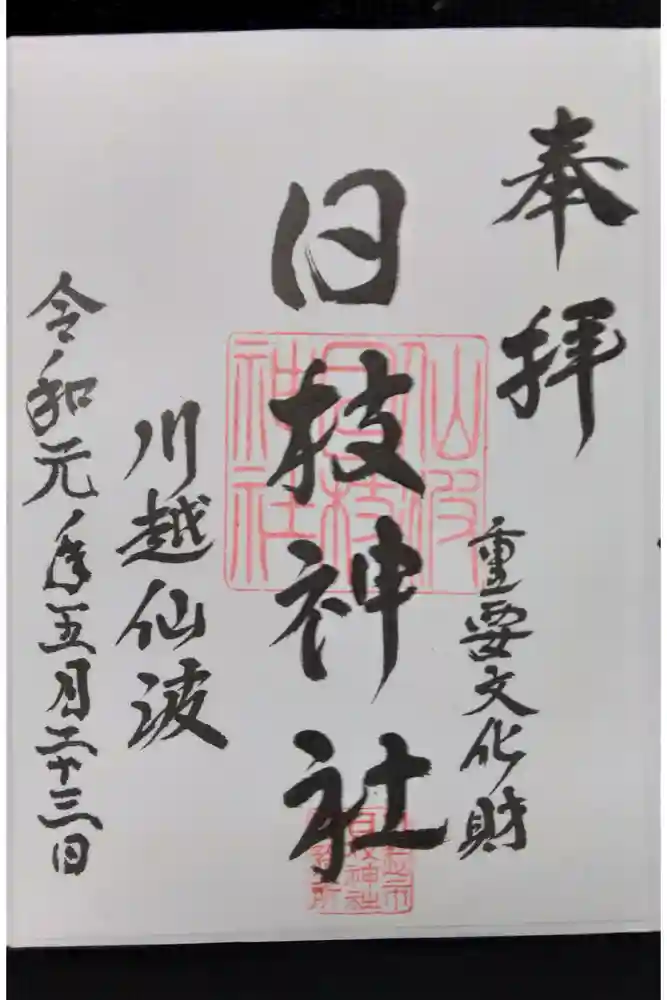 奉拝
重要文化財
日枝神社
川越仙波
令和元年五月二十三日
仙波
日枝
神社
日枝神社